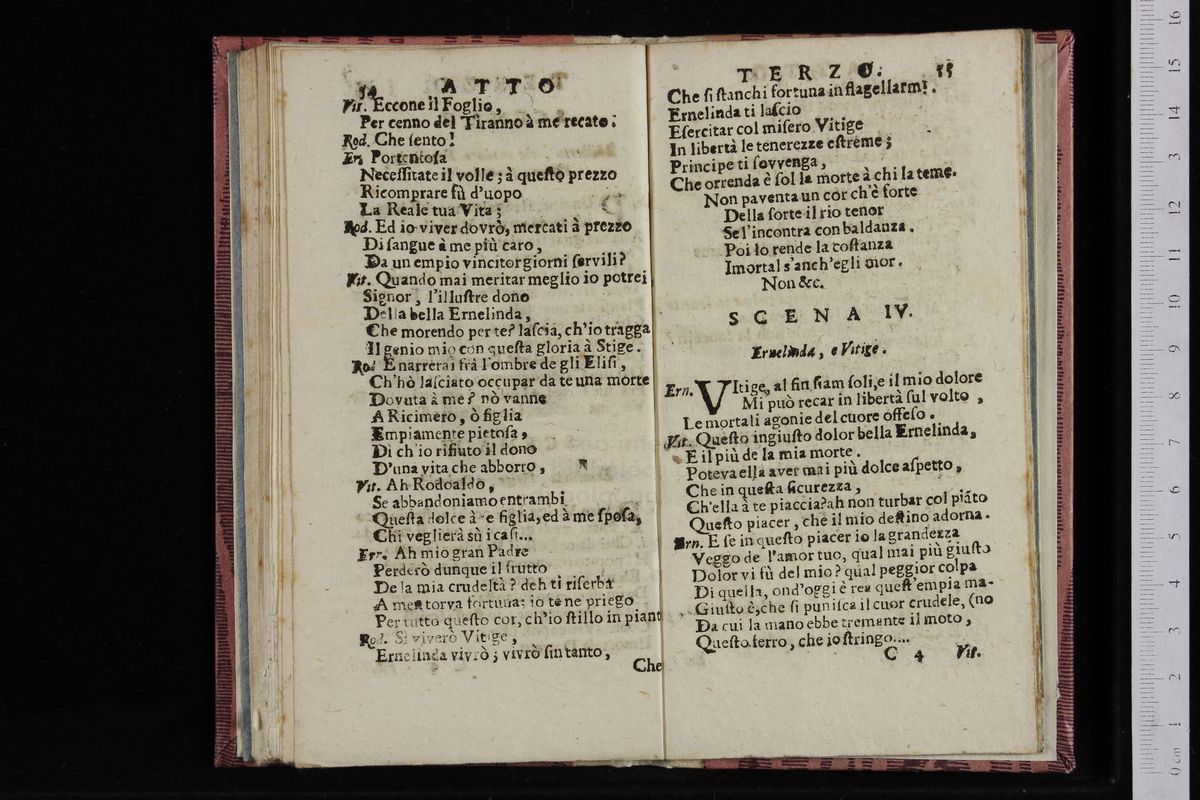 54 ATTO
Vit. Eccone il Foglio,
Per cenno del Tiranno à me recato.
Rod. Che sento!
Er. Portentosa
Necessitate il volle; à questo prezzo
Ricomprare fù d'uopo
La Reale tua Vita;
Rod. Ed io viver dovrò, mercati à prezzo
Di sangue à me più caro,
Da un empio vincitor giorni servili?
Vit. Quando mai meritar meglio io potrei
Signor, l'illustre dono
Della bella Ernelinda,
Che morendo per te? lascia, ch'io tragga
Il genio mio con questa gloria à Stige.
Rod E narrerai frà l'ombre de gli Elisi,
Ch'hò lasciato occupar da te una morte
Dovuta à me? nò vanne
A Ricimero, ò figlia
Empiamente pietosa,
Di ch'io rifiuto il dono
D'una vita che abborro,
Vit. Ah Rodoaldo,
Se abbandoniamo entrambi
Questa dolce à te figlia, ed à me sposa,
Chi veglierà sù i casi...
Ern. Ah mio gran Padre
Perderò dunque il frutto
De la mia crudeltà? deh ti riserba
A men torva fortuna; io te ne priego
Per tutto questo cor, ch'io stillo in piant
Rod. Si viverò Vitige,
Ernelinda vivrò; vivrò sin tanto,
Che
TERZO. 55
Che si stanchi fortuna in flagellarmi.
Ernelinda ti lascio
Esercitar col misero Vitige
In libertà le tenerezze estreme;
Principe ti sovvenga,
Che orrenda è sol la morte à chi la teme.
Non paventa un cor ch'è forte
Della sorte il rio tenor
Se l'incontra con baldanza.
Poi lo rende la costanza
Imortal s'anch'egli mor.
Non &c.
SCENA IV.
Ernelinda, e Vitige.
Ern. VItige, al fin siam soli, e il mio dolore
Mi può recar in libertà sul volto,
Le mortali agonie del cuore offeso.
Vit. Questo ingiusto dolor bella Ernelinda,
E il più de la mia morte.
Poteva ella aver mai più dolce aspetto,
Che in questa sicurezza,
Ch'ella à te piaccia? ah non turbar col piãto
Questo piacer, che il mio destino adorna.
Ern. E se in questo piacer io la grandezza
Veggo de l'amor tuo, qual mai più giusto
Dolor vi fù del mio? qual peggior colpa
Di quella, ond'oggi è rea quest'empia ma-
Giusto è, che si punisca il cuor crudele, (no
Da cui la mano ebbe tremante il moto,
Questo ferro, che io stringo....
C 4 Vit.
0 cm 1 2 3 4 5 6 7 8 9 10 11 12 13 14 15 16